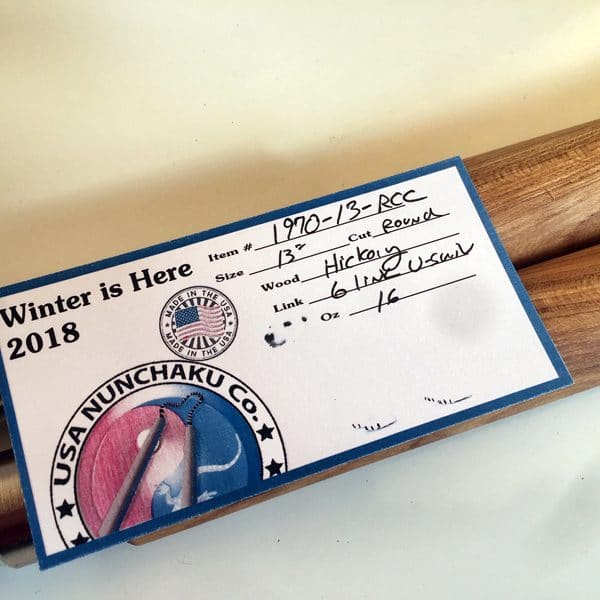 Winter is Here
2018
Item # 1970-13-RCC
Size 13" Cut Round
Wood Hickory
Link 6 link
Oz 16
MADE IN THE USA
MADE IN THE USA
USA NUNCHAKU CO.